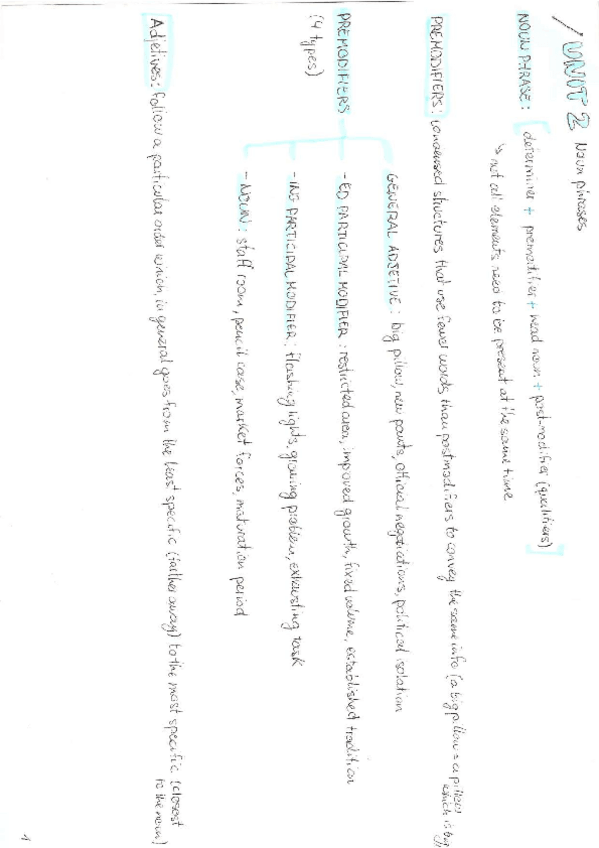 / UNIT 2 Noun phrases
NOUN PHRASE: [determiner + premodifier + head noun + post-modifier (qualifiers)]
↳ not all elements need to be present at the same time
PREMODIFIERS: condensed structures that use fewer words than postmodifiers to convey the same info (a big pillow = a pillow which is big)
GENERAL ADJETIVE: big pillow, new pants, official negotiations, political isolation
PREMODIFIERS
(4 types)
-ED PARTICIPAL MODIFIER: restricted area, improved growth, fixed volume, established tradition
-ING PARTICIPAL MODIFIER: flashing lights, growing problem, exhausting task
-NOUN: staff room, pencil case, market forces, maturation period
Adjetives: follow a particular order which, in general goes from the least specific (farther away) to the most specific (closest to the noun)
1